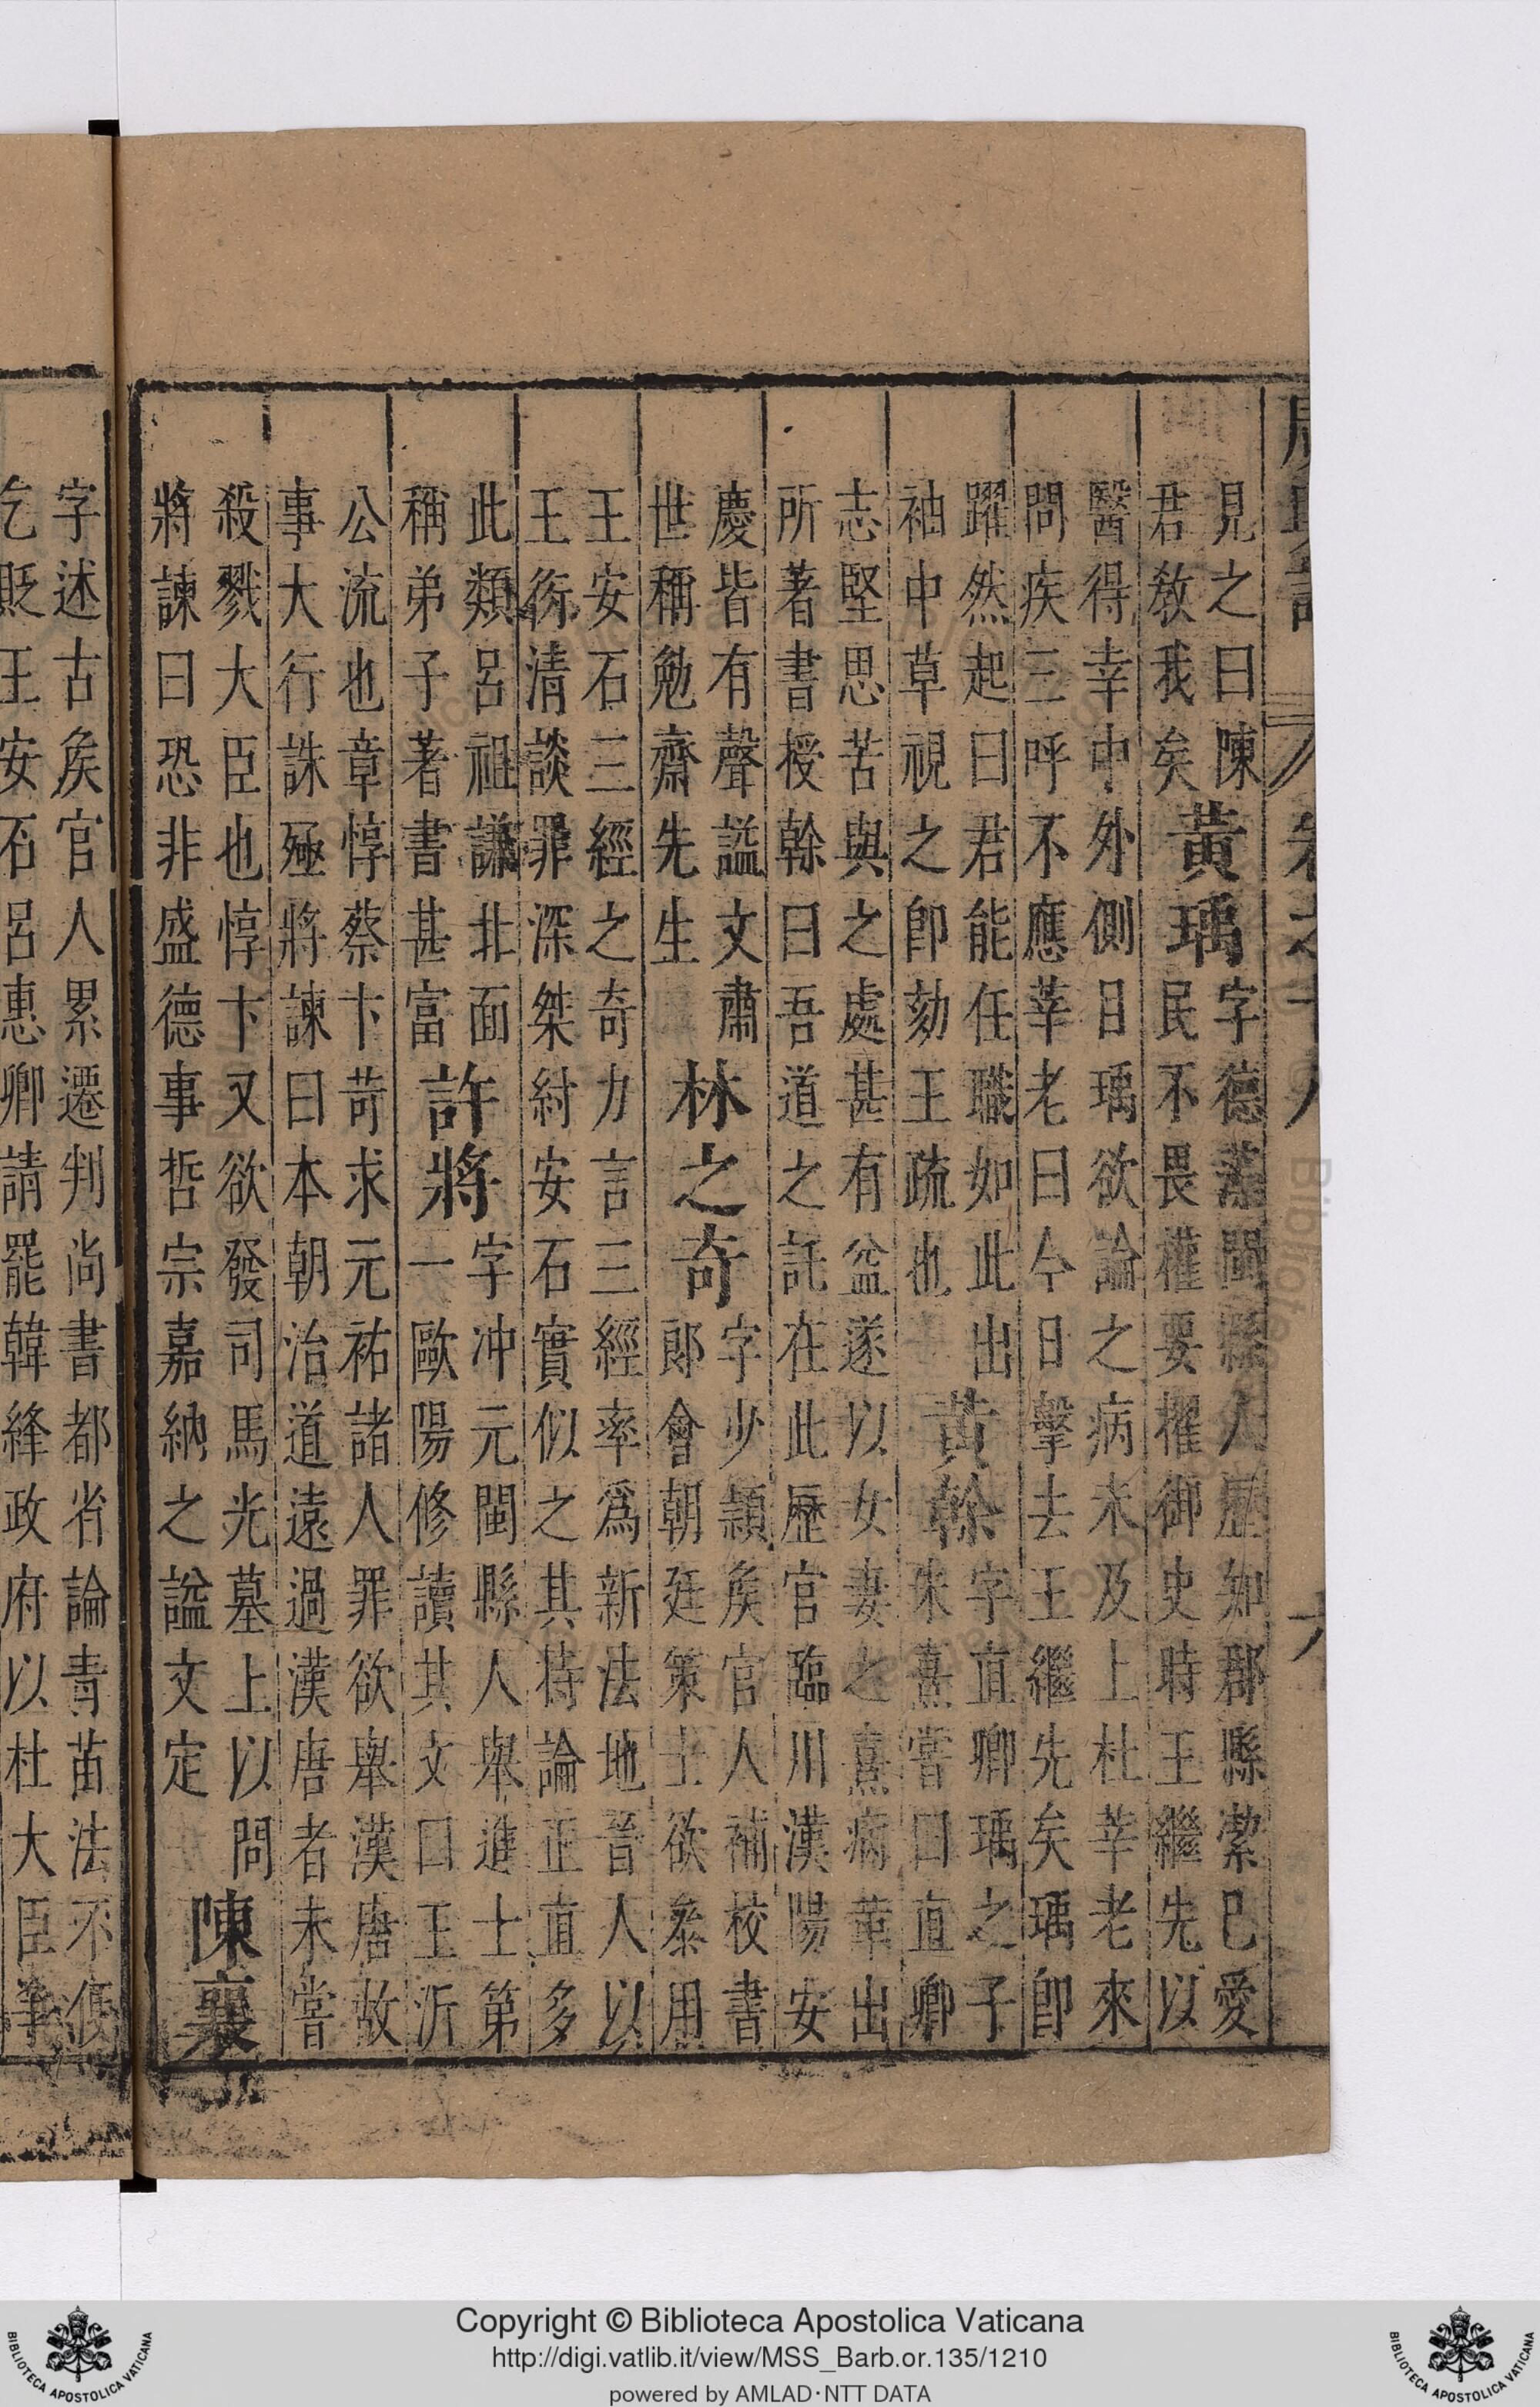 廣輿記 卷之十八 六
見之曰陳
君敎我矣
黃瑀
字德藻閩縣人歷知郡縣絜已愛
民不畏權要擢御史時王繼先以
醫得幸中外側目瑀欲論之病未及上杜莘老來
問疾三呼不應莘老曰今日擊去王繼先矣瑀卽
躍然起曰君能任職如此出
袖中草視之卽劾王疏也
黃榦
字直卿瑀之子
朱熹嘗曰直卿
志堅思苦與之處甚有益遂以女妻之熹病革出
所著書授榦曰吾道之託在此歷官臨川漢陽安
慶皆有聲謚文肅
世稱勉齋先生
林之奇
字少穎矦官人補校書
郎會朝廷策士欲叅用
王安石三經之奇力言三經率爲新法地晉人以
王衍清談罪深桀紂安石實似之其持論正直多
此類呂祖謙北面
稱弟子著書甚富
許將
字冲元閩縣人舉進士第
一歐陽修讀其文曰王沂
公流也章惇蔡卞苛求元祐諸人罪欲舉漢唐故
事大行誅殛將諫曰本朝治道遠過漢唐者未嘗
殺戮大臣也惇卞又欲發司馬光墓上以問
將諫曰恐非盛德事哲宗嘉納之謚文定
陳襄
字述古矦官人累遷判尚書都省論靑苗法不便
乞貶王安石呂惠卿請罷韓絳政府以杜大臣爭
Copyright © Biblioteca Apostolica Vaticana
http://digi.vatlib.it/view/MSS_Barb.or.135/1210
powered by AMLAD·NTT DATA
BIBLIOTECA APOSTOLICA VATICANA
BIBLIOTECA APOSTOLICA VATICANA